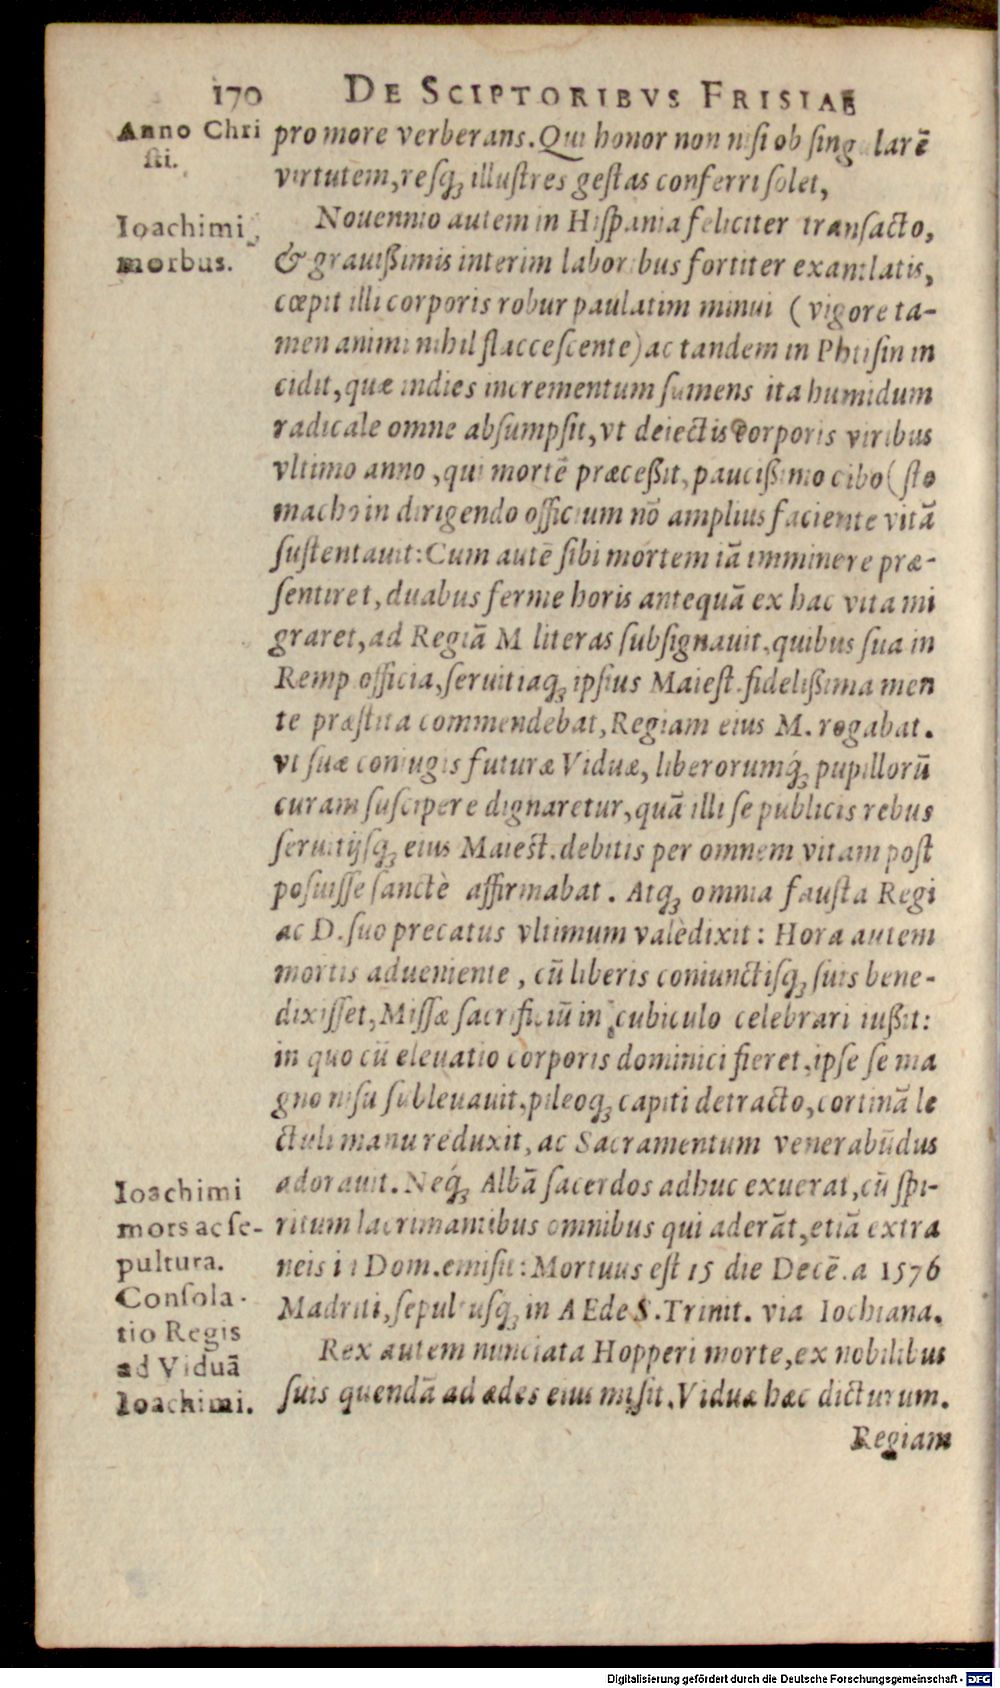 170 DE SCIPTORIBVS FRISIAE
Anno Chri
sti.
pro more verberans. Qui honor non nisi ob singularē
virtutem, resq́ꝫ illustres gestas conferri solet,
Ioachimi
morbus.
Nouennio autem in Hispania feliciter transacto,
& grauißimis interim laboribus fortiter exantlatis,
cœpit illi corporis robur paulatim minui (vigore ta-
men animi nihil flaccescente) ac tandem in Phtisin in
cidit, quæ indies incrementum sumens ita humidum
radicale omne absumpsit, vt deiectis corporis viribus
vltimo anno, qui mortē præceßit, paucißimo cibo (sto
macho in dirigendo officium nō amplius faciente vitā
sustentauit: Cum autē sibi mortem iā imminere præ-
sentiret, duabus ferme horis antequā ex hac vita mi
graret, ad Regiā M literas subsignauit, quibus sua in
Remp officia, seruitiaqꝫ ipsius Maiest. fidelißima men
te præstita commendebat, Regiam eius M. rogabat.
vt suæ coniugis futuræ Viduæ, liberorumq́ꝫ pupillorū
curam suscipere dignaretur, quā illi se publicis rebus
seruitijsqꝫ eius Maiest. debitis per omnem vitam post
posuisse sanctè affirmabat. Atqꝫ omnia fausta Regi
ac D. suo precatus vltimum valèdixit: Hora autem
mortis adueniente, cū liberis coniunctisqꝫ suis bene-
dixisset, Missæ sacrificiū in cubiculo celebrari iußit:
in quo cū eleuatio corporis dominici fieret, ipse se ma
gno nisu subleuauit, pileoqꝫ capiti detracto, cortinā le
ctuli manu reduxit, ac Sacramentum venerabūdus
adorauit. Neq́ꝫ Albā sacerdos adhuc exuerat, cū spi-
Ioachimi
mors ac se-
pultura.
Consola-
tio Regis
ad Viduā
Ioachimi.
ritum lacrimantibus omnibus qui aderāt, etiā extra
neis in Dom. emisit: Mortuus est 15 die Decē. a 1576
Madriti, sepultusqꝫ in AEde S. Trinit. via Iochiana.
Rex autem nunciata Hopperi morte, ex nobilibus
suis quendā ad ædes eius misit. Viduæ hæc dicturum.
Regiam
Digitalisierung gefördert durch die Deutsche Forschungsgemeinschaft - DFG